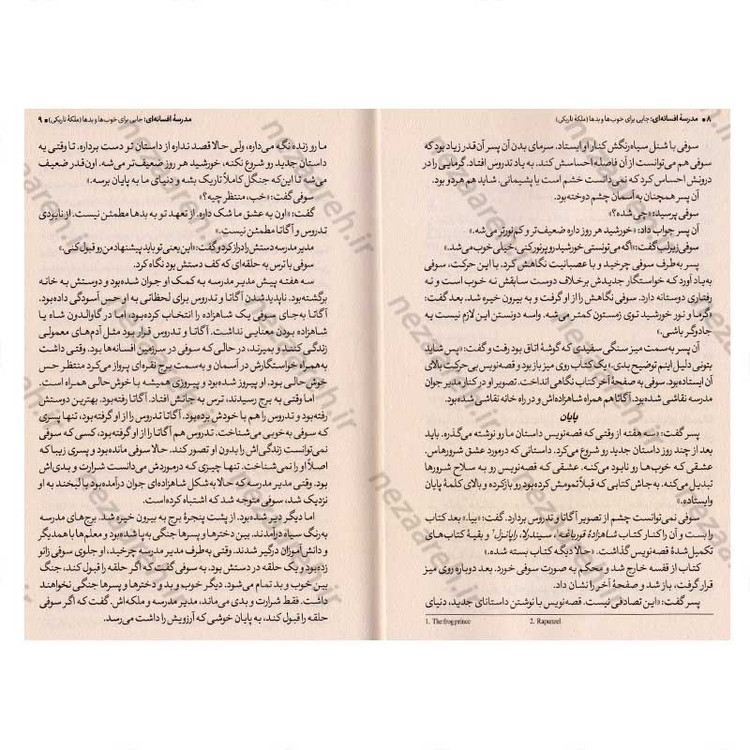 ۸ ■ مدرسهٔ افسانه‌ای: جایی برای خوب‌ها و بدها (ملکهٔ تاریکی)
سوفی با شنل سیاه‌رنگش کنار او ایستاد. سرمای بدن آن پسر آن‌قدر زیاد بود که
سوفی هم می‌توانست از آن فاصله احساسش کند. به یاد تدروس افتاد. گرمایی را در
درونش احساس کرد که نمی‌دانست خشم است یا پشیمانی. شاید هم هر دو بود.
آن پسر همچنان به آسمان چشم دوخته بود.
سوفی پرسید: «چی شده؟»
آن پسر جواب داد: «خورشید هر روز داره ضعیف‌تر و کم‌نورتر می‌شه.»
سوفی زیر لب گفت: «اگه می‌تونستی خورشید رو پرنور کنی، خیلی خوب می‌شد.»
پسر به‌طرف سوفی چرخید و با عصبانیت نگاهش کرد. با این حرکت، سوفی
به‌یاد آورد که خواستگار جدیدش برخلاف دوست سابقش نه خوب است و نه
رفتاری دوستانه دارد. سوفی نگاهش را از او گرفت و به بیرون خیره شد. بعد گفت:
«گرما و نور خورشید توی زمستون کمتر می‌شه. واسه دونستن این لازم نیست یه
جادوگر باشی.»
آن پسر به سمت میز سنگی سفیدی که گوشهٔ اتاق بود رفت و گفت: «پس شاید
بتونی دلیل اینم توضیح بدی.» یک کتاب روی میز باز بود و قصه‌نویس بی‌حرکت بالای
آن ایستاده بود. سوفی به صفحهٔ آخر کتاب نگاهی انداخت. تصویر او در کنار مدیر جوان
مدرسه نقاشی شده بود. آگاتا هم همراه شاهزاده‌اش و در راه خانه نقاشی شده بود.
پایان
پسر گفت: «سه هفته از وقتی که قصه‌نویس داستان ما رو نوشته می‌گذره. باید
بعد از چند روز داستان جدید رو شروع می‌کرد. داستانی که در مورد عشق شرورهاس.
عشقی که خوب‌ها رو نابود می‌کنه. عشقی که قصه‌نویس رو به سلاح شرورها
تبدیل می‌کنه. به‌جاش کتابی که قبلاً تمومش کرده بود رو باز کرده و بالای کلمهٔ پایان
وایستاده.»
سوفی نمی‌توانست چشم از تصویر آگاتا و تدروس بردارد. گفت: «بیا.» بعد کتاب
را بست و آن را کنار کتاب شاهزادهٔ قورباغه۱، سیندرلا، راپانزل۲ و بقیهٔ کتاب‌های
تکمیل‌شدهٔ قصه‌نویس گذاشت. «حالا دیگه کتاب بسته شده.»
کتاب از قفسه خارج شد و محکم به صورت سوفی خورد. بعد دوباره روی میز
قرار گرفت، باز شد و صفحهٔ آخر را نشان داد.
پسر گفت: «این تصادفی نیست. قصه‌نویس با نوشتن داستانای جدید، دنیای
1. The frog prince 2. Rapunzel
مدرسهٔ افسانه‌ای: جایی برای خوب‌ها و بدها (ملکهٔ تاریکی) ■ ۹
ما رو زنده نگه می‌داره، ولی حالا قصد نداره از داستان تو دست برداره. تا وقتی یه
داستان جدید رو شروع نکنه، خورشید هر روز ضعیف‌تر می‌شه. اون‌قدر ضعیف
می‌شه تا این‌که جنگل کاملاً تاریک بشه و دنیای ما به پایان برسه.»
سوفی گفت: «خب، منتظر چیه؟»
گفت: «اون به عشق ما شک داره. از تعهد تو به بدها مطمئن نیست. از نابودی
تدروس و آگاتا مطمئن نیست.»
مدیر مدرسه دستش را دراز کرد و گفت: «این یعنی تو باید پیشنهاد من رو قبول کنی.»
سوفی با ترس به حلقه‌ای که کف دستش بود نگاه کرد.
سه هفته پیش مدیر مدرسه به کمک او جوان شده بود و دوستش به خانه
برگشته بود. ناپدید شدن آگاتا و تدروس برای لحظاتی به او حس آسودگی داده بود.
آگاتا به‌جای سوفی یک شاهزاده را انتخاب کرده بود، اما در گاوالدون شاه یا
شاهزاده بودن معنایی نداشت. آگاتا و تدروس قرار بود مثل آدم‌های معمولی
زندگی کنند و بمیرند، در حالی که سوفی در سرزمین افسانه‌ها بود. وقتی داشت
به‌همراه خواستگارش در آسمان و به‌سمت برج نقره‌ای پرواز می‌کرد منتظر حس
خوش حالی بود. او پیروز شده بود و پیروزی همیشه با خوش حالی همراه است.
اما وقتی به برج رسیدند، ترس به جانش افتاد. آگاتا رفته بود. بهترین دوستش
رفته بود و تدروس را هم با خودش برده بود. آگاتا تدروس را از او گرفته بود، تنها پسری
که سوفی به‌خوبی می‌شناخت. تدروس هم آگاتا را از او گرفته بود، کسی که سوفی
نمی‌توانست زندگی‌اش را بدون او تصور کند. حالا سوفی مانده بود و پسری زیبا که
اصلاً او را نمی‌شناخت. تنها چیزی که در موردش می‌دانست شرارت و بدی‌اش
بود. وقتی مدیر مدرسه که حالا به شکل شاهزاده‌ای جوان درآمده بود با لبخند به او
نزدیک شد، سوفی متوجه شد که اشتباه کرده است.
اما دیگر دیر شده بود. از پشت پنجرهٔ برج به بیرون خیره شد. برج‌های مدرسه
به‌رنگ سیاه درآمدند. بین دخترها و پسرها جنگی به پا شده بود و معلم‌ها با همدیگر
و دانش‌آموزان درگیر شدند. وقتی به‌طرف مدیر مدرسه چرخید، او جلوی سوفی زانو
زده بود و یک حلقه در دستش بود. به سوفی گفت که اگر حلقه را قبول کند، جنگ
بین خوب و بد تمام می‌شود. دیگر خوب و بد و دخترها و پسرها جنگی نخواهند
داشت. فقط شرارت و بدی می‌ماند، مدیر مدرسه و ملکه‌اش. گفت که اگر سوفی
حلقه را قبول کند، به پایان خوشی که آرزویش را داشت می‌رسد.
nezaareh.ir